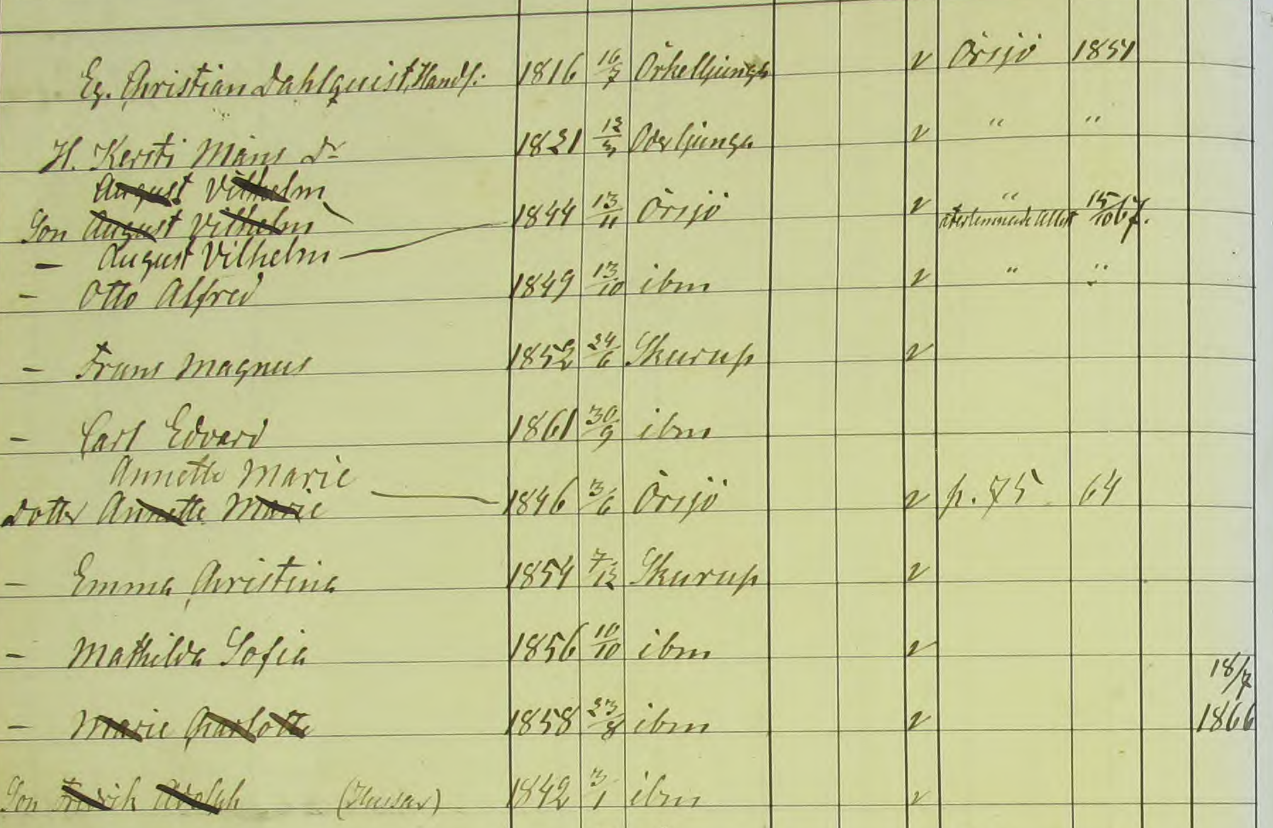 Eg. Christian Dahlquist, Handl: 1816 16/7 Örkelljunga v Örsjö 1851
H. Kersti Måns Dr 1821 12/3 Oderljunga v " "
August Vilhelm
Son August Vilhelm 1844 13/11 Örsjö v " 15/10 67.
— August Vilhelm
— Otto Alfred 1849 13/10 ibm v " "
— Frans Magnus 1852 24/6 Skurup v
— Carl Edvard 1861 30/9 ibm
Annette Marie
Dotter Annette Marie 1846 3/6 Örsjö v p. 75 64
— Emma Christina 1854 7/12 Skurup v
— Mathilda Sofia 1856 10/10 ibm v
18/7
— Marie Charlotte 1858 23/8 ibm v 1866
Son Fredrik Adolph (Husar) 1842 3/1 ibm v